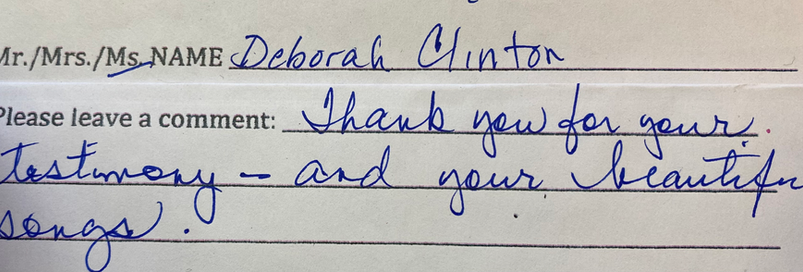 Mr./Mrs./Ms. NAME Deborah Clinton
Please leave a comment: Thank you for your
testimony – and your beautiful
songs.